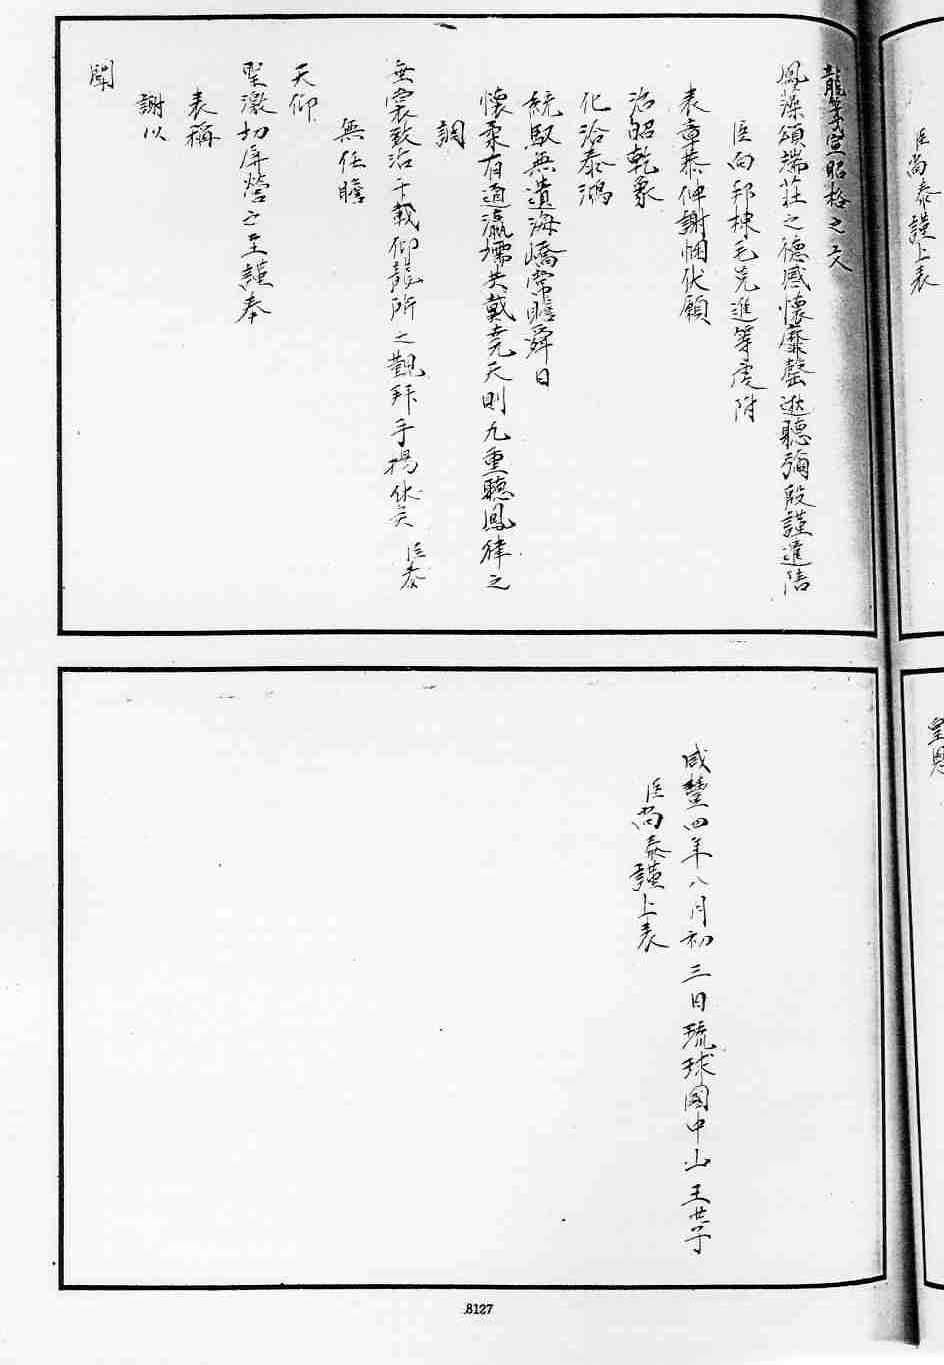 臣尚泰謹上表
皇恩
龍章宣昭格之文
鳳藻頌端莊之德感懷靡罄遜聽彌殷謹遣陪
臣向邦棟毛克進等虔附
表章恭伸謝悃伏願
治昭乾象
化洽泰鴻
統馭無遺海嶠常瞻舜日
懷柔有道瀛壖共戴堯天則九重聽鳳律之
調
垂裳致治千載仰龍斾之觀拜手揚休矣臣泰
無任瞻
天仰
聖激切屏營之至謹奉
表稱
謝以
聞
咸豐四年八月初三日琉球國中山王世子
臣尚泰謹上表
8127